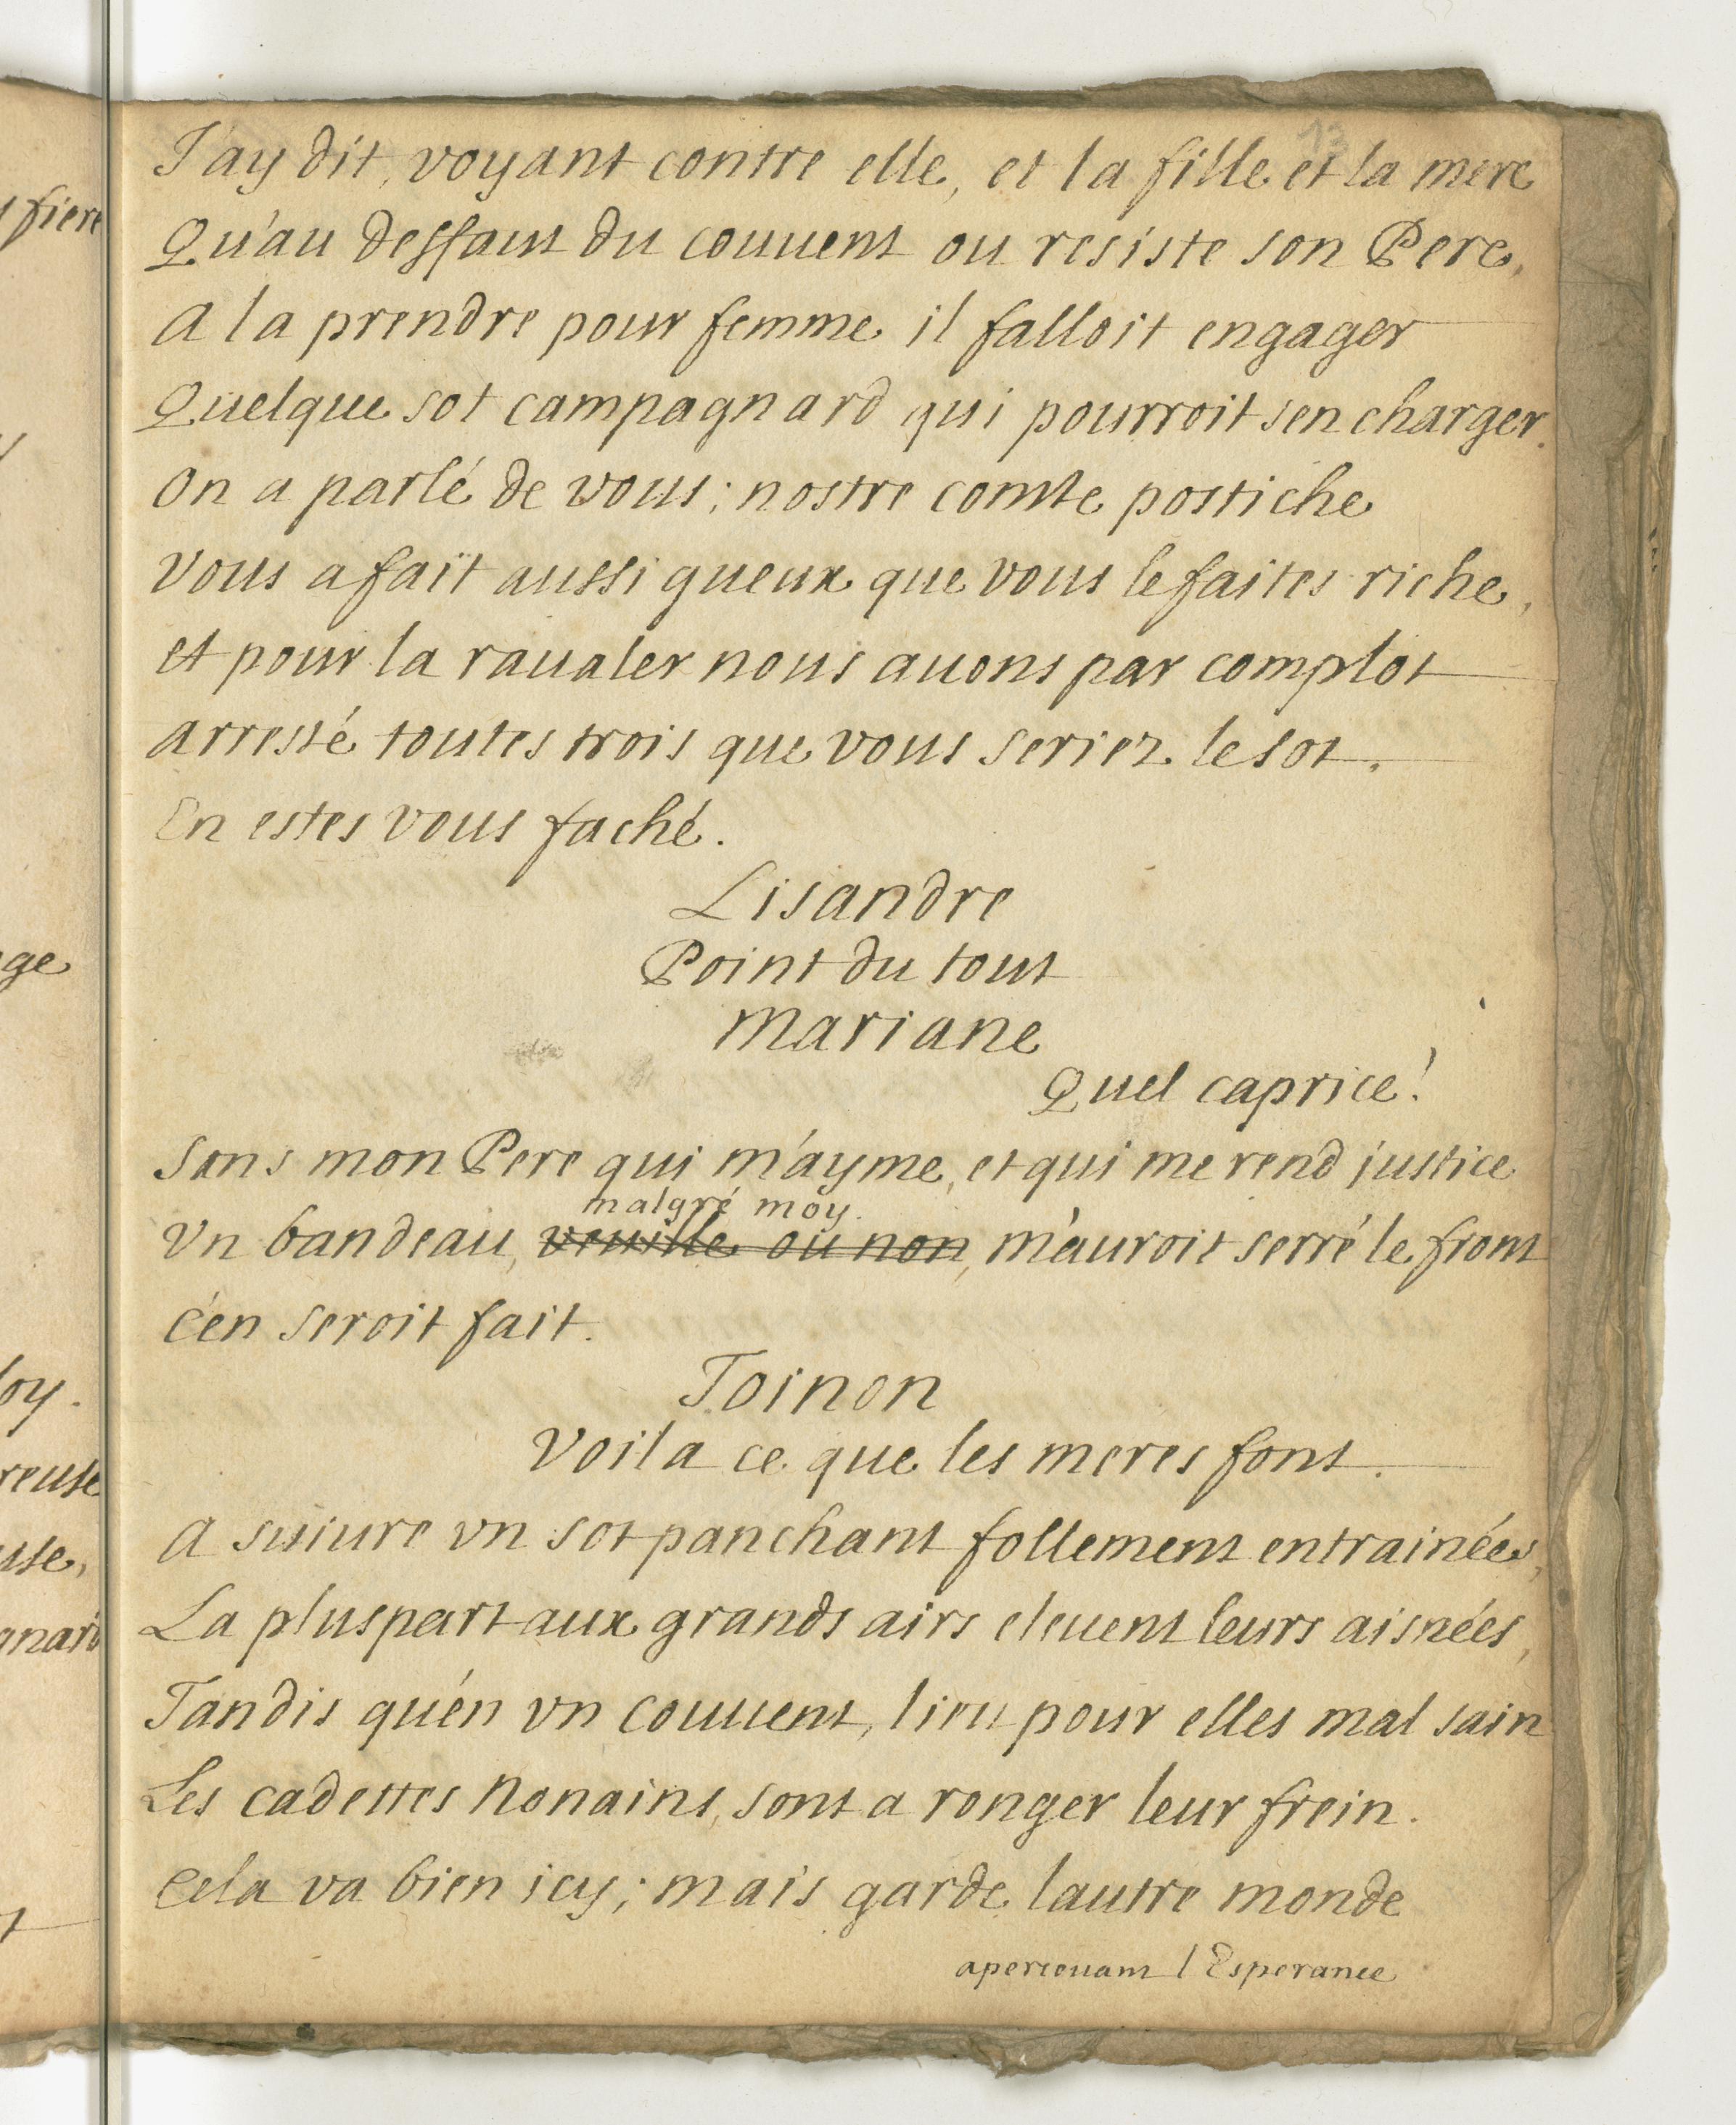 13
J'ay dit, voyant contre elle, et la fille et la mere
Qu'au deffaut du couuent ou resiste son Pere,
A la prendre pour femme il falloit engager
Quelque sot campagnard qui pourroit s'en charger.
On a parlé de vous; nostre comte postiche
Vous a fait aussi gueux que vous le faites riche,
et pour la raualer nous auons par complot
arresté toutes trois que vous seriez le sot.
En estes vous faché.
Lisandre
Point du tout
Mariane
Quel caprice!
Sans mon Pere qui m'ayme, et qui me rend justice
malgré moy.
Vn bandeau, veuille ou non, m'auroit serré le front
C'en seroit fait.
Toinon
Voila ce que les meres font.
A suiure vn sot panchant follement entrainées,
La pluspart aux grands airs eleuent leurs aisnées,
Tandis qu'en vn couuent, lieu pour elles mal sain
Les cadettes Nonains, sont a ronger leur frein.
Cela va bien icy; mais garde lautre monde
aperceuant l'Esperance